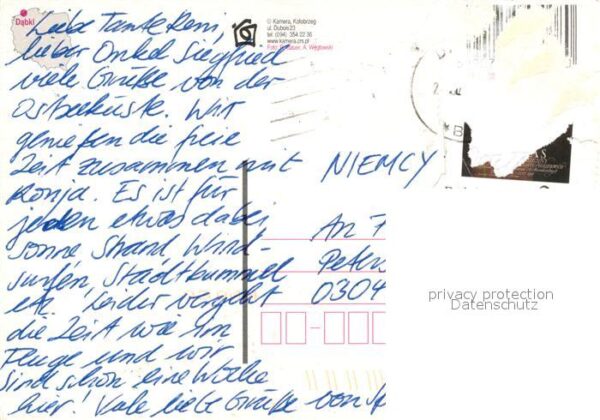 Dąbki
Liebe Tante Reni,
lieber Onkel Siegfried
viele Grüße von der
Ostseeküste. Wir
genießen die freie
Zeit zusammen mit
Ronja. Es ist für
jeden etwas dabei
Sonne Strand, Wind-
surfen, Stadtbummel
etc. Leider vergeht
die Zeit wie im
Fluge und wir
sind schon eine Woche
hier! Viele liebe Grüße von
© Kamera, Kołobrzeg
ul. Dubois 20
tel. (094) 354 22 36
www.kamera.cm.pl
NIEMCY
An F
Peters
0304
privacy protection
Datenschutz